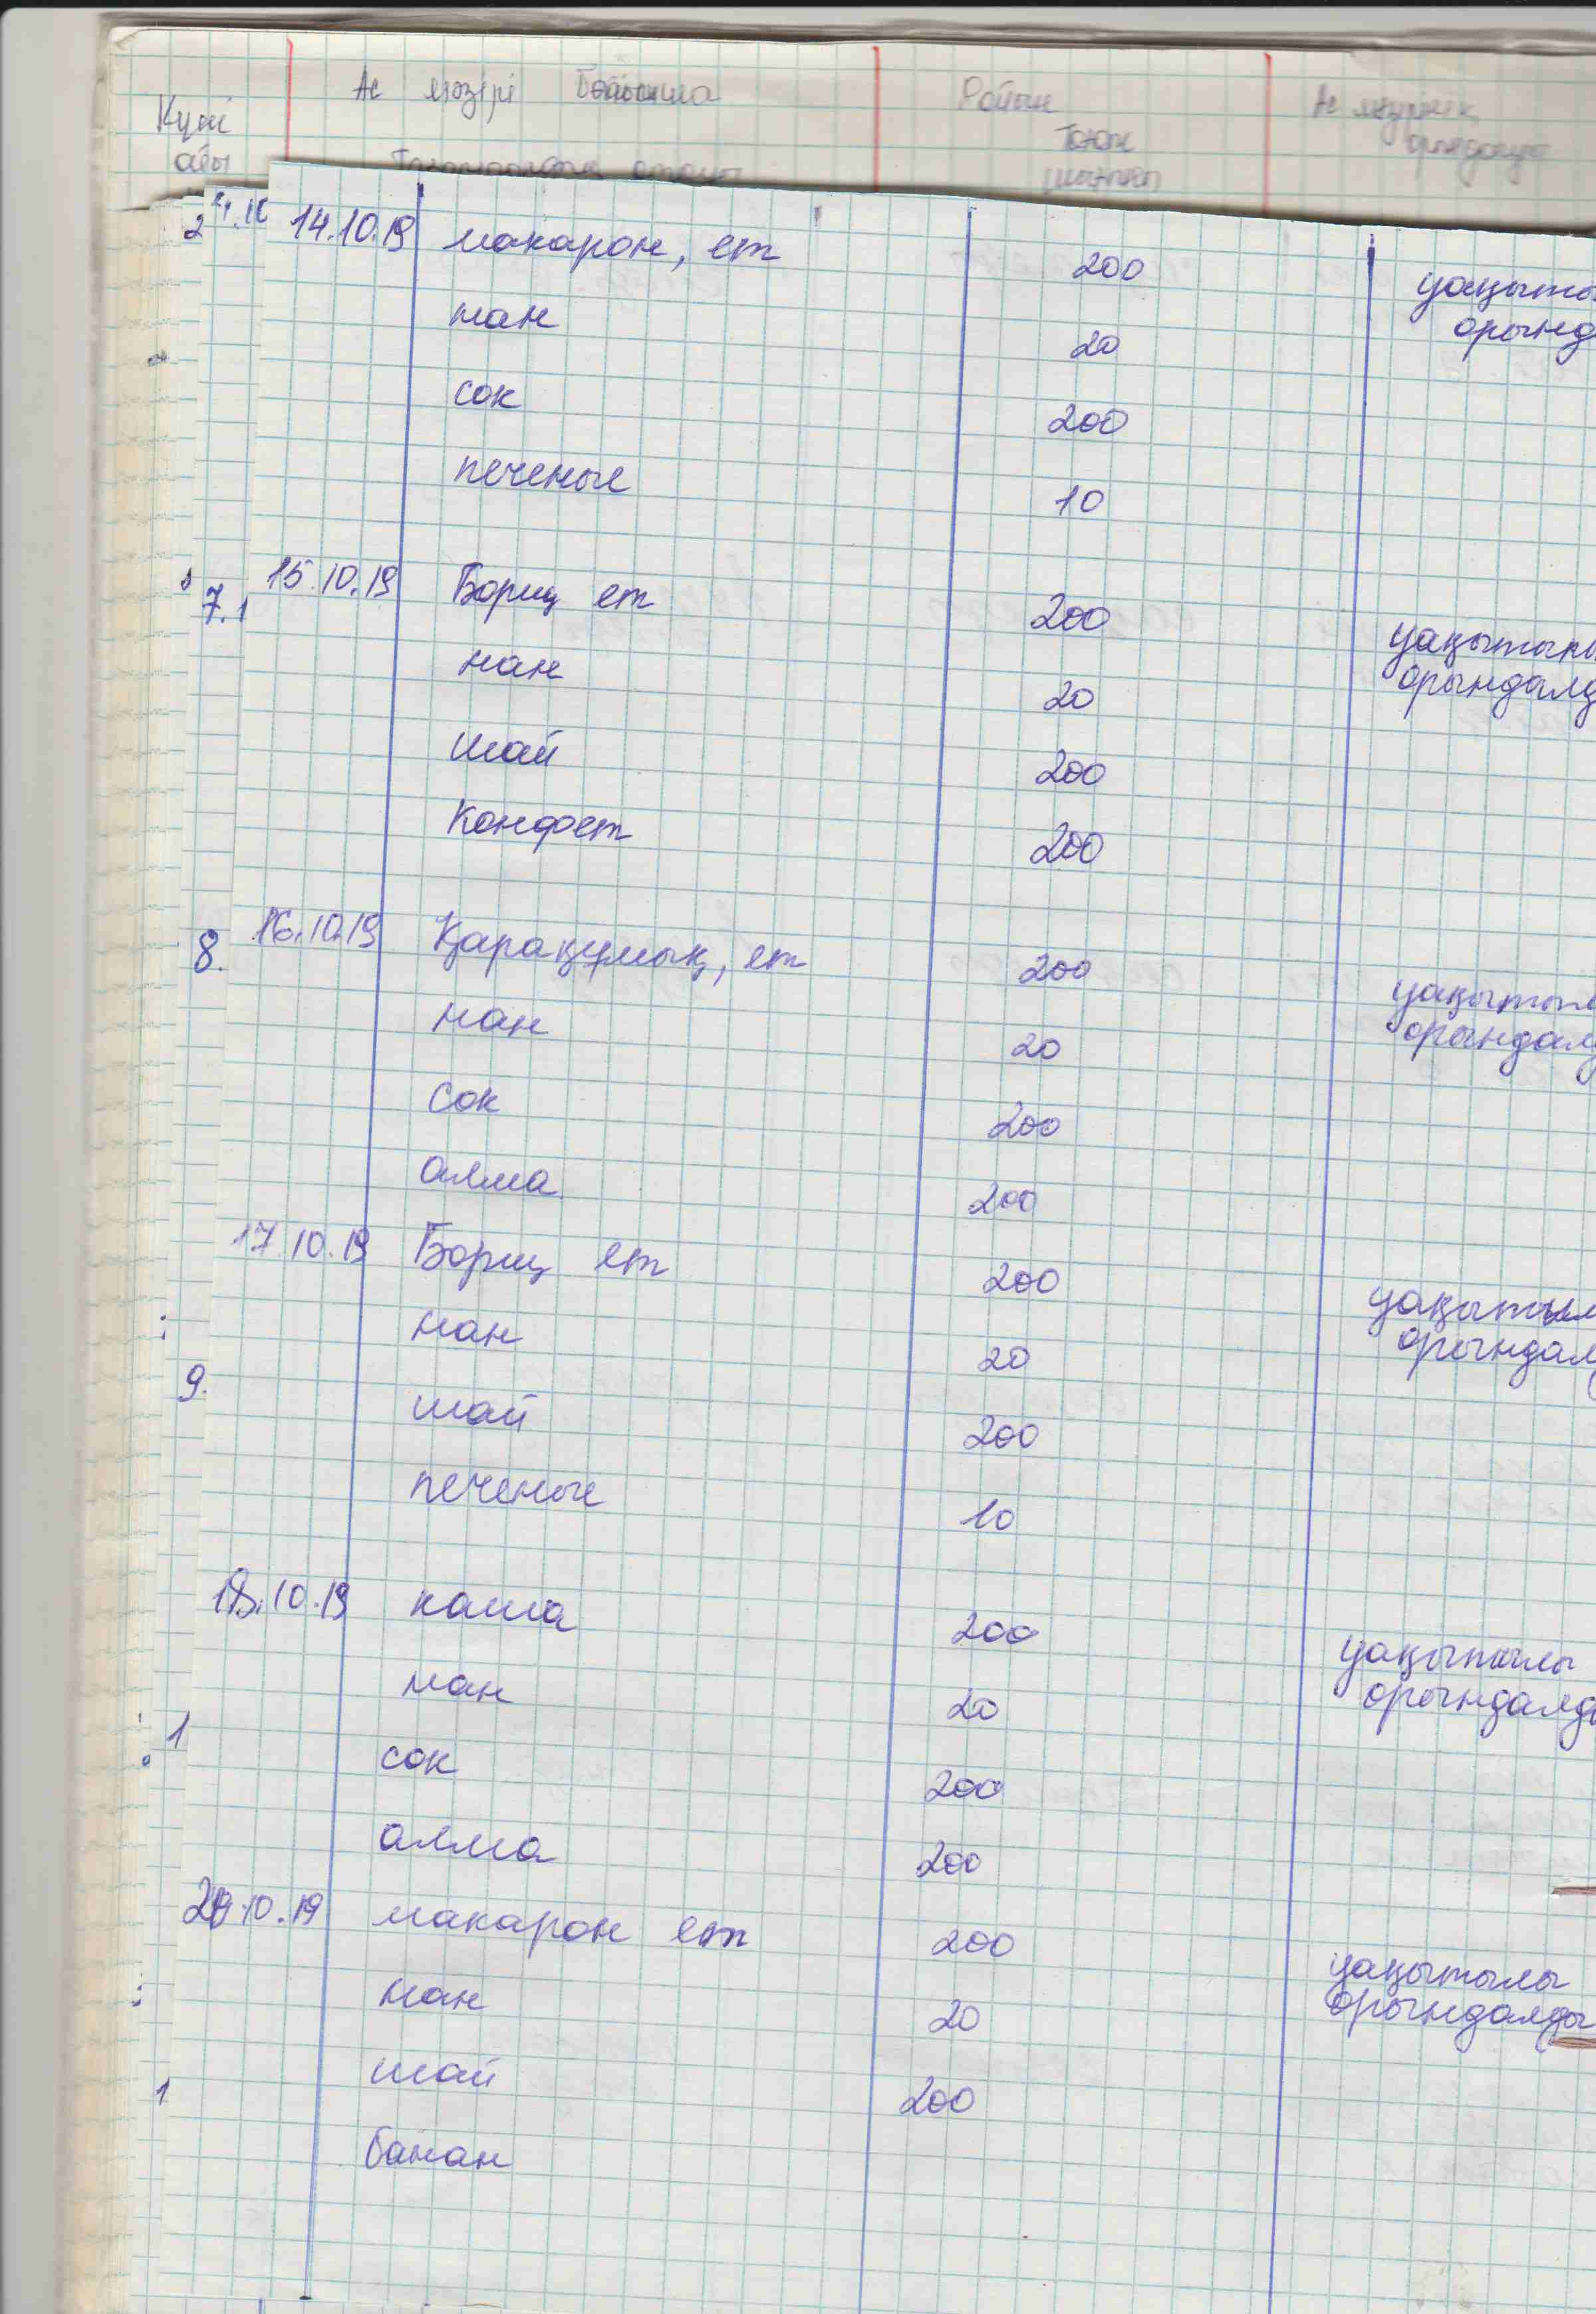 Күні Ас мәзірі Бойынша
айы
14.10.19 макарон, ет 200 уақыты
орынд
нан 20
сок 200
печенье 10
15.10.19 Борщ ет 200 уақытыл
орындалд
нан 20
шай 200
Конфет 200
16.10.19 Қарақұмық, ет 200 уақытыл
орындал
нан 20
сок 200
алма 200
17.10.19 Борщ ет 200 уақытыл
орындал
нан 20
шай 200
печенье 10
18.10.19 каша 200 уақытылы
орындалды
нан 20
сок 200
алма 200
10.19 макарон ет 200 уақытылы
орындалды
нан 20
шай 200
банан